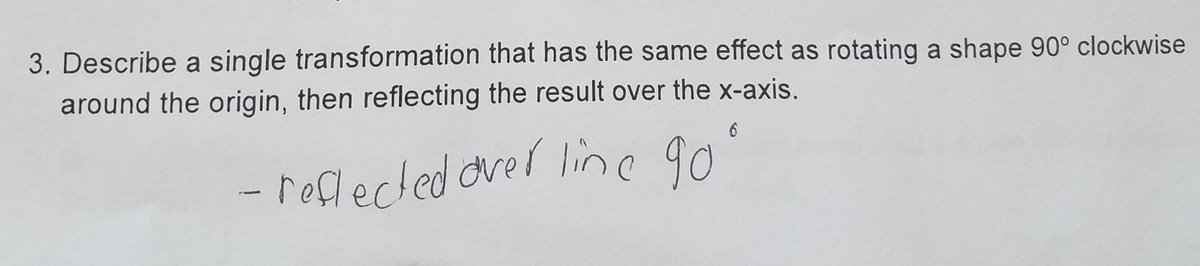 3. Describe a single transformation that has the same effect as rotating a shape 90º clockwise
around the origin, then reflecting the result over the x-axis.
- reflected over line 90°